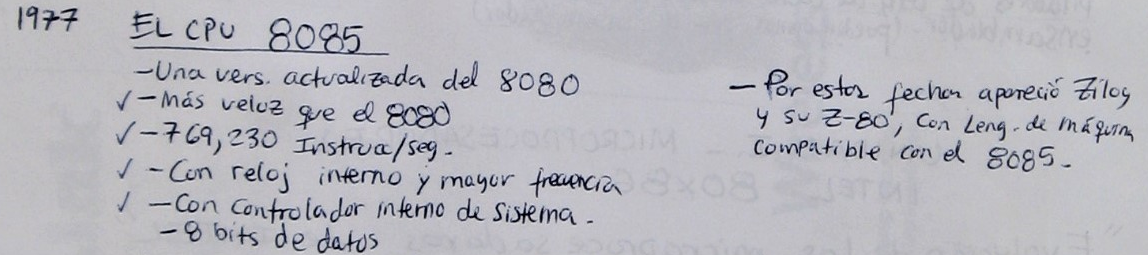 1977 EL CPU 8085
-Una vers. actualizada del 8080
✓-Más veloz que el 8080
✓-769,230 Instrucc/seg.
✓-Con reloj interno y mayor frecuencia
✓-Con controlador interno de sistema.
-8 bits de datos
-Por estas fechas apareció Zilog
y su Z-80, con Leng. de máquina
compatible con el 8085.